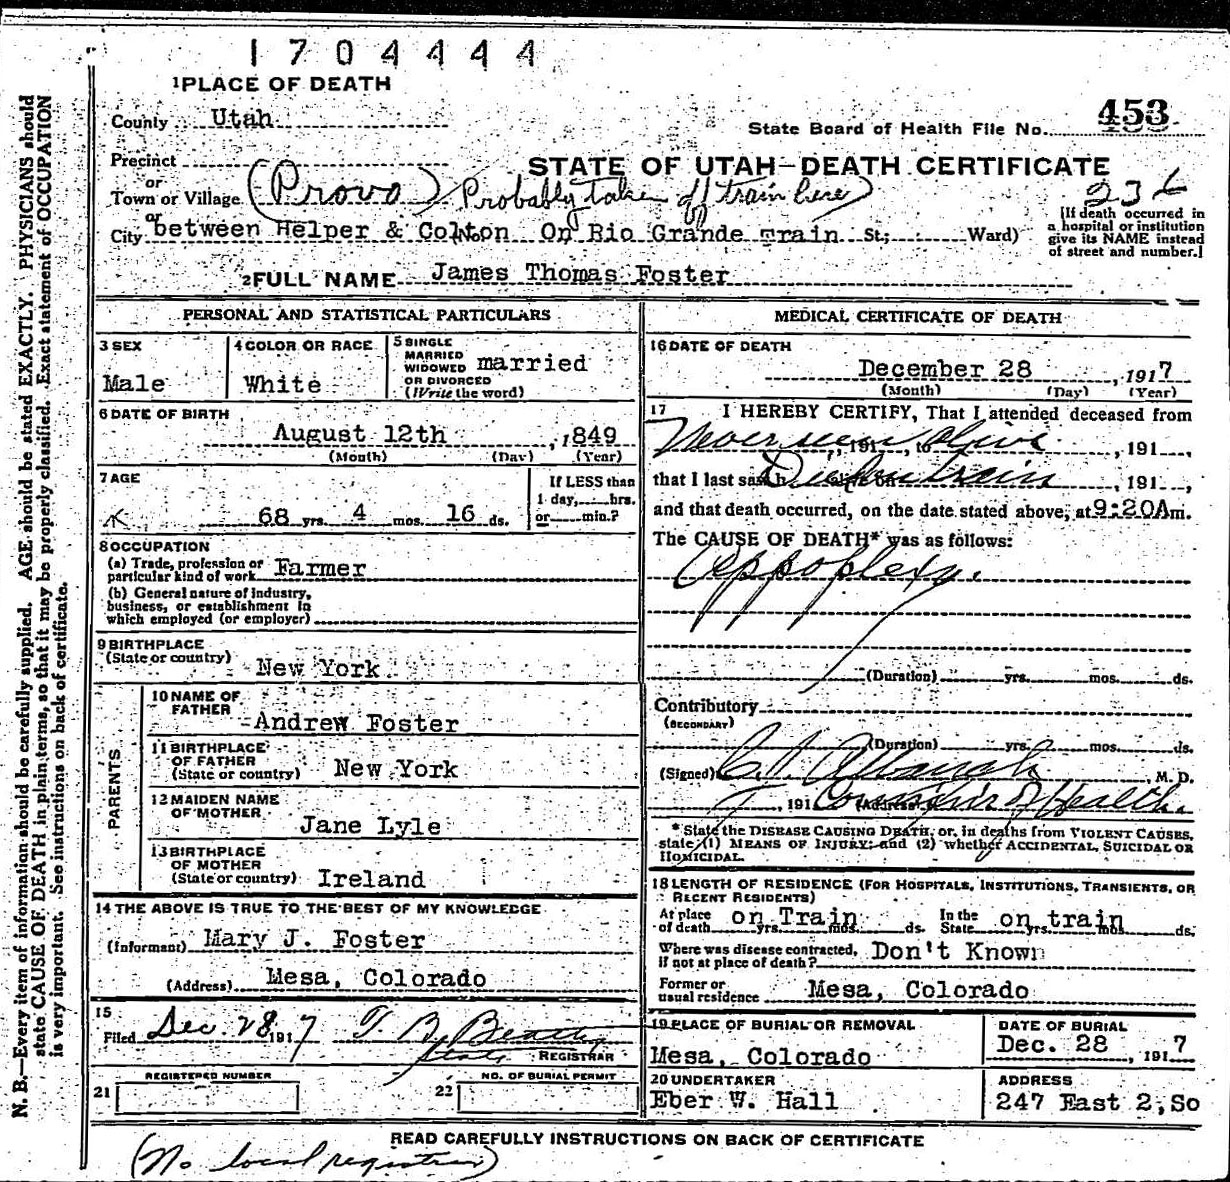 1704444
1 PLACE OF DEATH
County Utah
State Board of Health File No. 453
Precinct
STATE OF UTAH—DEATH CERTIFICATE
or
Town or Village (Provo) Probably taken off train here)
236
or
City between Helper & Colton On Rio Grande Train St.; Ward)
[If death occurred in a hospital or institution give its NAME instead of street and number.]
2 FULL NAME James Thomas Foster
PERSONAL AND STATISTICAL PARTICULARS
3 SEX
Male
4 COLOR OR RACE
White
5 SINGLE
MARRIED
WIDOWED
OR DIVORCED
(Write the word)
married
6 DATE OF BIRTH
August 12th, 1849
(Month) (Day) (Year)
7 AGE
68 yrs. 4 mos. 16 ds.
If LESS than
1 day, hrs.
or min.?
8 OCCUPATION
(a) Trade, profession or
particular kind of work Farmer
(b) General nature of industry,
business, or establishment in
which employed (or employer)
9 BIRTHPLACE
(State or country) New York
PARENTS
10 NAME OF
FATHER Andrew Foster
11 BIRTHPLACE
OF FATHER
(State or country) New York
12 MAIDEN NAME
OF MOTHER
Jane Lyle
13 BIRTHPLACE
OF MOTHER
(State or country) Ireland
14 THE ABOVE IS TRUE TO THE BEST OF MY KNOWLEDGE
(Informant) Mary J. Foster
(Address) Mesa, Colorado
15
Filed Dec. 28 1917 T. B. Beatty
State REGISTRAR
REGISTERED NUMBER
21
NO. OF BURIAL PERMIT
22
MEDICAL CERTIFICATE OF DEATH
16 DATE OF DEATH
December 28, 1917
(Month) (Day) (Year)
17 I HEREBY CERTIFY, That I attended deceased from
Never seen alive, 191, to, 191,
that I last saw h Died on train, 191,
and that death occurred, on the date stated above, at 9:20A m.
The CAUSE OF DEATH* was as follows:
Appoplexy.
(Duration) yrs. mos. ds.
Contributory
(SECONDARY)
(Duration) yrs. mos. ds.
(Signed) M. D.
, 191 (Address) of Health.
* State the DISEASE CAUSING DEATH, or, in deaths from VIOLENT CAUSES,
state (1) MEANS OF INJURY; and (2) whether ACCIDENTAL, SUICIDAL OR
HOMICIDAL.
18 LENGTH OF RESIDENCE (FOR HOSPITALS, INSTITUTIONS, TRANSIENTS, OR
RECENT RESIDENTS)
At place
of death on Train yrs. mos. ds.
In the
State on train yrs. mos. ds.
Where was disease contracted,
if not at place of death? Don't Known
Former or
usual residence Mesa, Colorado
19 PLACE OF BURIAL OR REMOVAL
Mesa, Colorado
DATE OF BURIAL
Dec. 28, 1917
20 UNDERTAKER
Eber W. Hall
ADDRESS
247 East 2, So
READ CAREFULLY INSTRUCTIONS ON BACK OF CERTIFICATE
(No local registrar)
N. B.—Every item of information should be carefully supplied. AGE should be stated EXACTLY. PHYSICIANS should
state CAUSE OF DEATH in plain terms, so that it may be properly classified. Exact statement of OCCUPATION
is very important. See instructions on back of certificate.